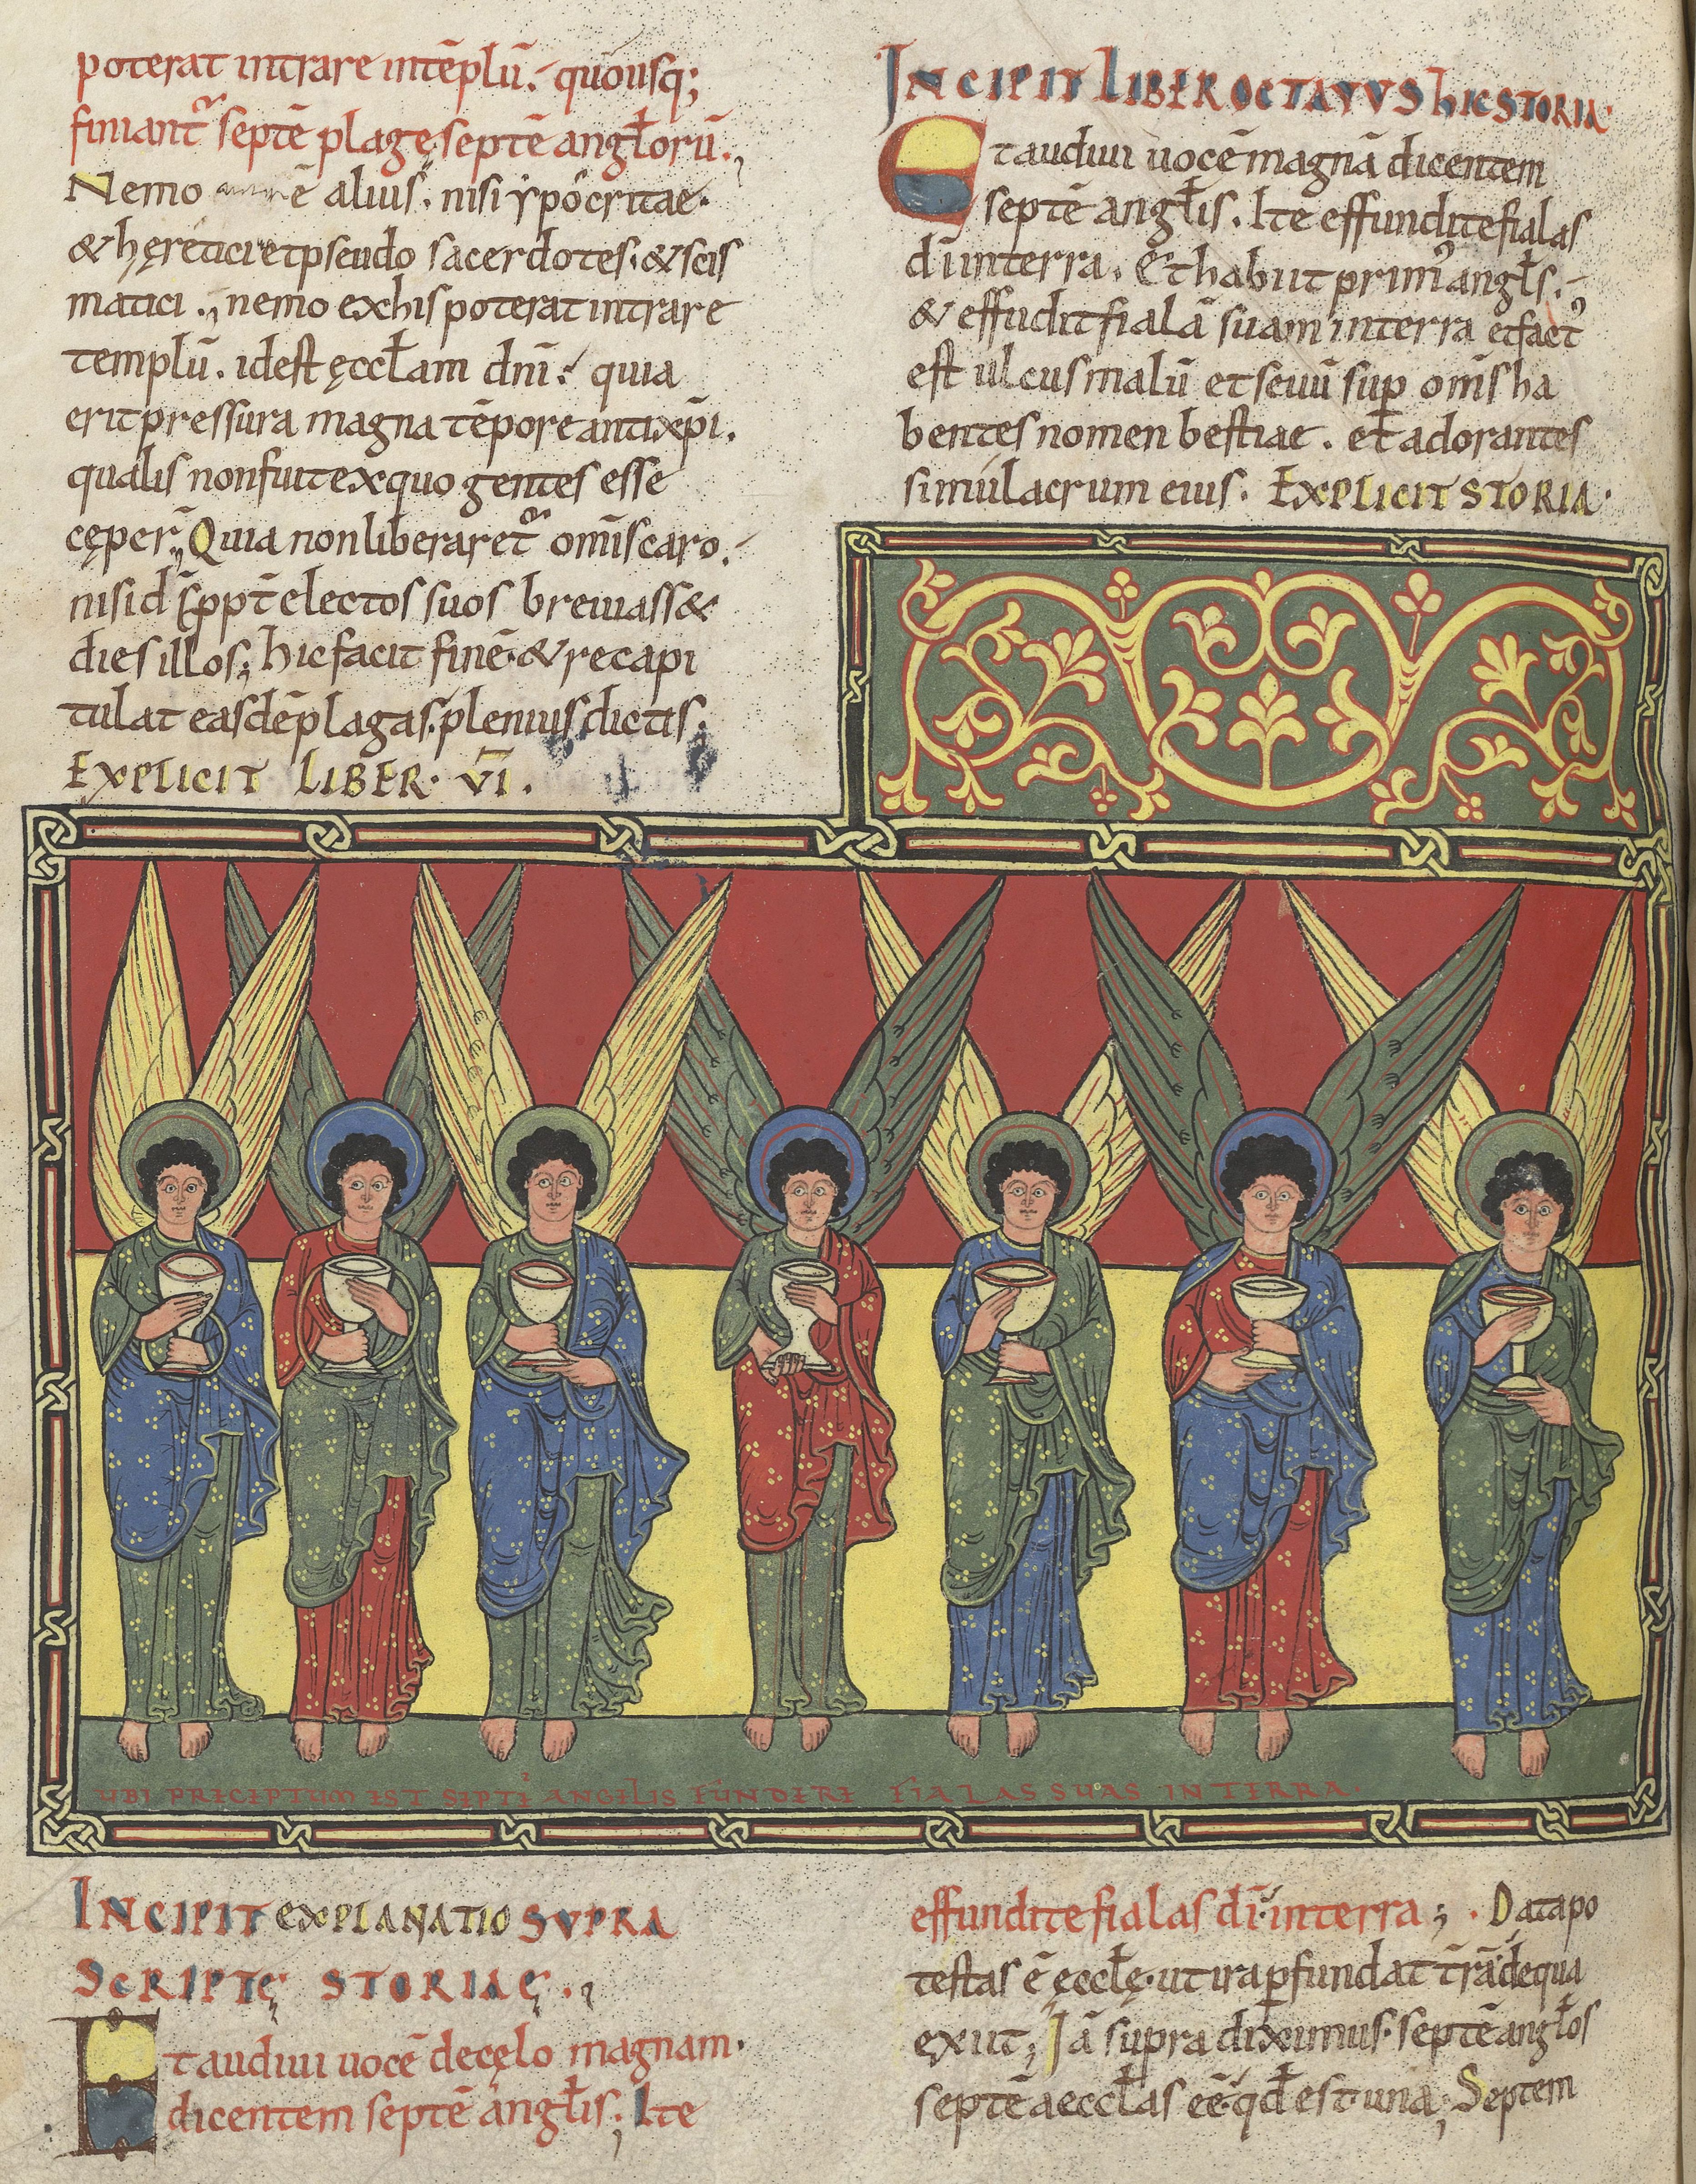 poterat intrare intēplū. quousq;
finiant᷑ septē plagę septē angl̄orū.
Nemo ē alius. nisi ypocritae.
& hęretici et pseudo sacerdotes. & scis
matici. nemo ex his poterat intrare
templū. id est ęccl̄am dn̄i. quia
erit pressura magna tēpore antixp̄i.
qualis non fuit ex quo gentes esse
cęper̄. Quia non liberaret᷑ om̄is caro.
nisi d̄s ppt̄ electos suos breuiass&
dies illos; hic facit finē. & recapi
tulat easdē plagas. plenius dictis.
EXPLICIT LIBER. VI.
INCIPIT LIBER OCTAVVS hICSTORIA.
Et audiui uocē magnā dicentem
septē angl̄is. Ite effundite fialas
dī in terra. Et habiit primꝰ angl̄s.
& effudit fialā suam in terra et factꝰ
est ulcus malū et seuū sup om̄s ha
bentes nomen bestiae. et adorantes
simulacrum eius. EXPLICIT STORIA.
UBI PRECEPTUM EST SEPTĒ ANGELIS FUNDERE FIALAS SUAS IN TERRA.
INCIPIT EXPLANATIO SVPRA
SCRIPTĘ STORIAĘ.
Et audiui uocē de cęlo magnam.
dicentem septē angl̄is. Ite
effundite fialas dī in terra; Data po
testas ē ęccl̄ę. ut irā pfundat t̄rā de qua
exiit; Iā supra diximus. septē angl̄os
septē aeccl̄as eē. qd̄ est una; Septem